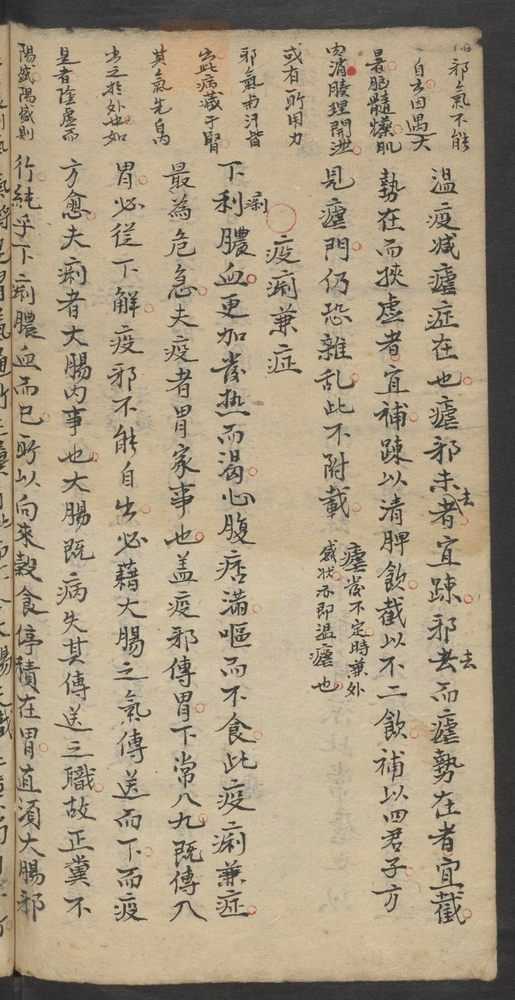 温疫减瘧症在也瘧邪未去者宜踈邪去而瘧勢在者宜截
勢在而挾虚者宜補踈以清脾飲截以不二飲補以四君子方
見瘧門仍恐雜乱此不附載
瘧發不定時兼外
感状亦即温瘧也
疫痢兼症
下痢膿血更加發热而渴心腹痞滿嘔而不食此疫痢兼症
最為危急夫疫者胃家事也盖疫邪傳胃下常八九既傳入
胃必従下解疫邪不能自出必藉大腸之氣傳送而下而疫
方愈夫痢者大腸内事也大腸既病失其傳送之職故正糞不
行純乎下痢膿血而已所以向来穀食停積在胃直須大腸邪
邪氣不能
自出因遇大
暑腦髓爍肌
肉消腠理開泄
或有所用力
邪氣與汗皆
出此病藏于腎
其氣先自内
出之於外也如
是者陰虚而
陽盛陽盛則